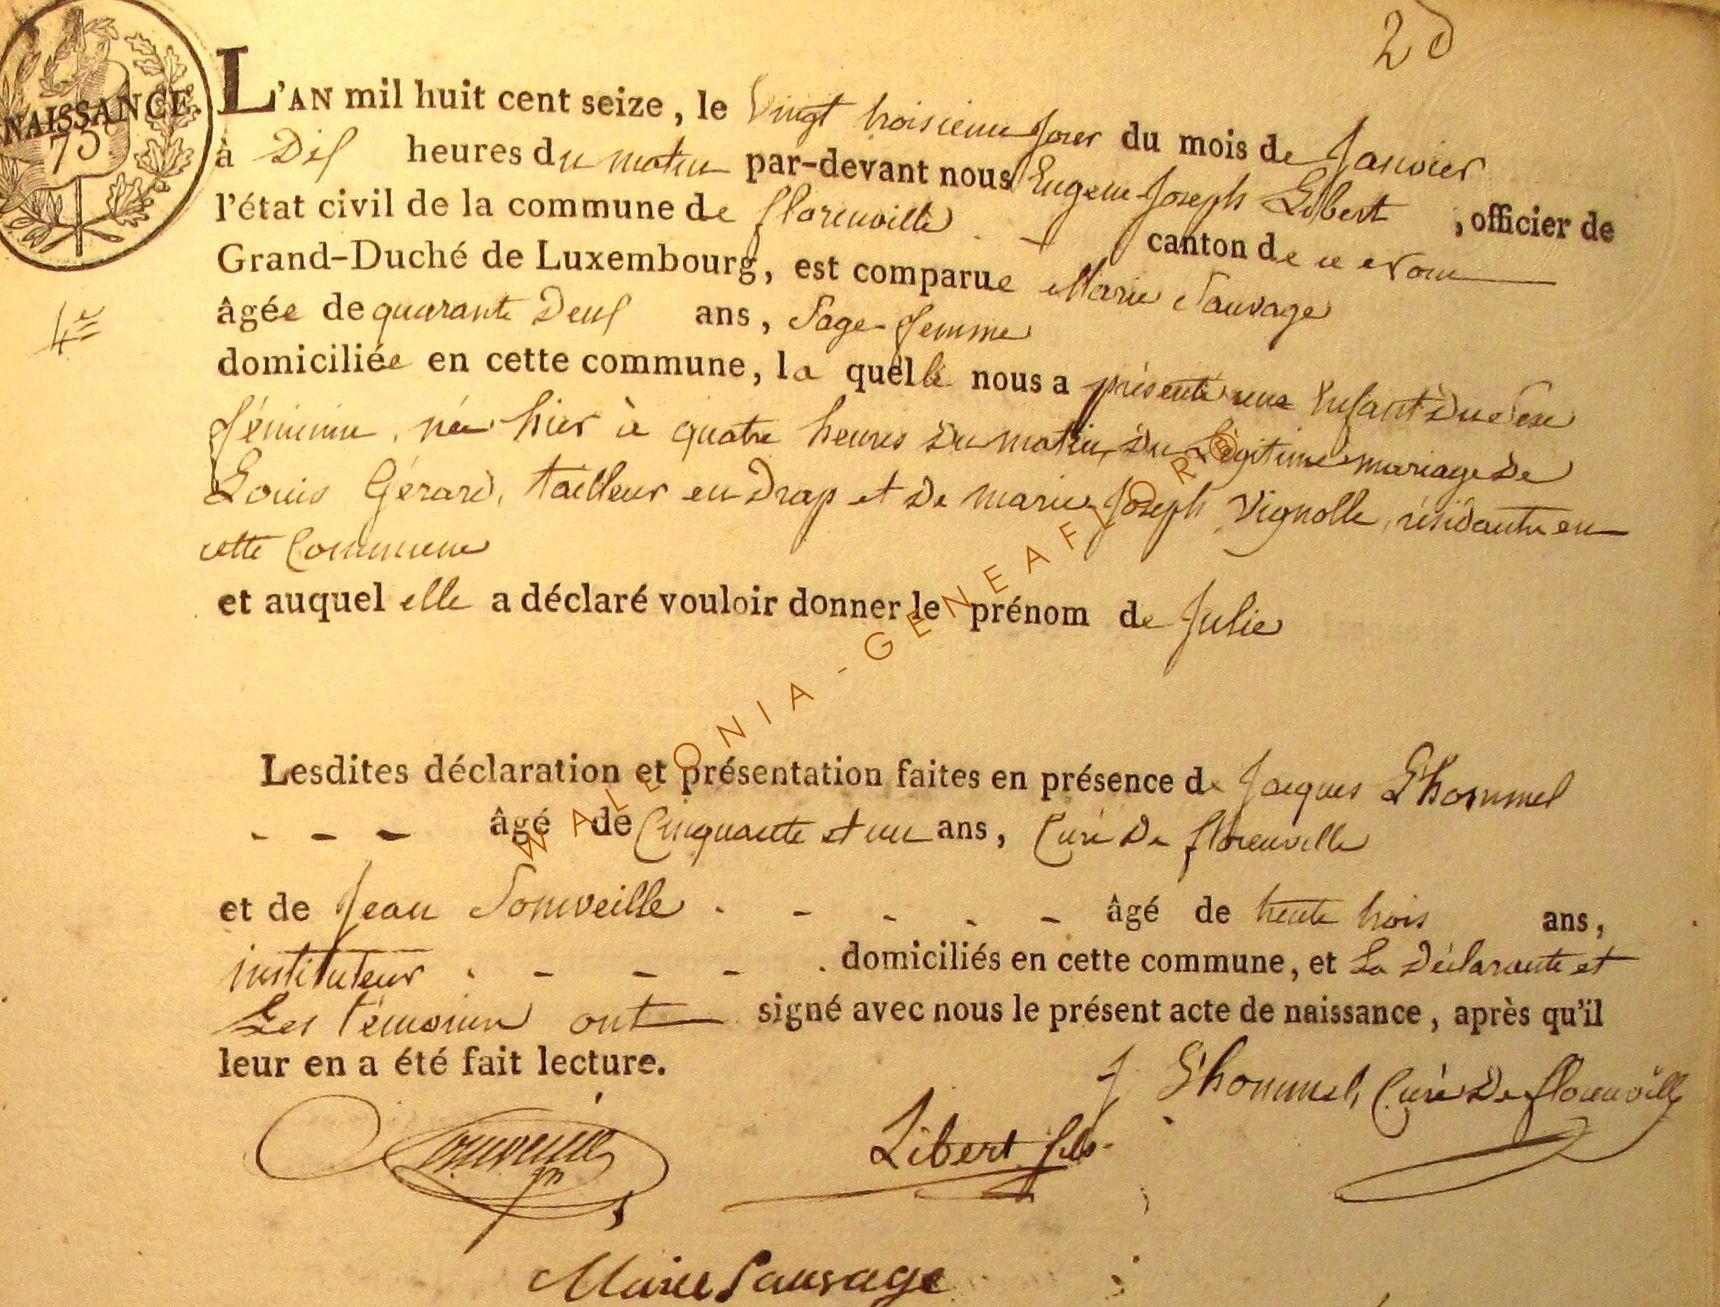 2d
NAISSANCE
75
L'AN mil huit cent seize, le vingt troisieme jour du mois de Janvier
à Dix heures du matin par-devant nous Eugene Joseph Libert, officier de
l'état civil de la commune de florenville - - canton de ce nom
Grand-Duché de Luxembourg, est comparue Marie Sauvage
âgée de quarante Deux ans, Sage-femme
domiciliée en cette commune, la quelle nous a présenté une Enfant du Sexe
féminin, née hier à quatre heures du matin, du Légitime mariage de
Louis Gérard, tailleur en Drap et de marie Joseph Vignolle, résidante en
cette Commune
et auquel elle a déclaré vouloir donner le prénom de Julie
Lesdites déclaration et présentation faites en présence de Jacques L'hommel
- - - âgé de Cinquante et un ans, Curé de florenville
et de Jean Sonveille - - - - - âgé de trente trois ans,
instituteur - - - - domiciliés en cette commune, et La Déclarante et
Les témoins ont signé avec nous le présent acte de naissance, après qu'il
leur en a été fait lecture.
J L'hommel, Curé de florenville
Libert fils
Marie Sauvage
WALLONIA - GENEAFLORE